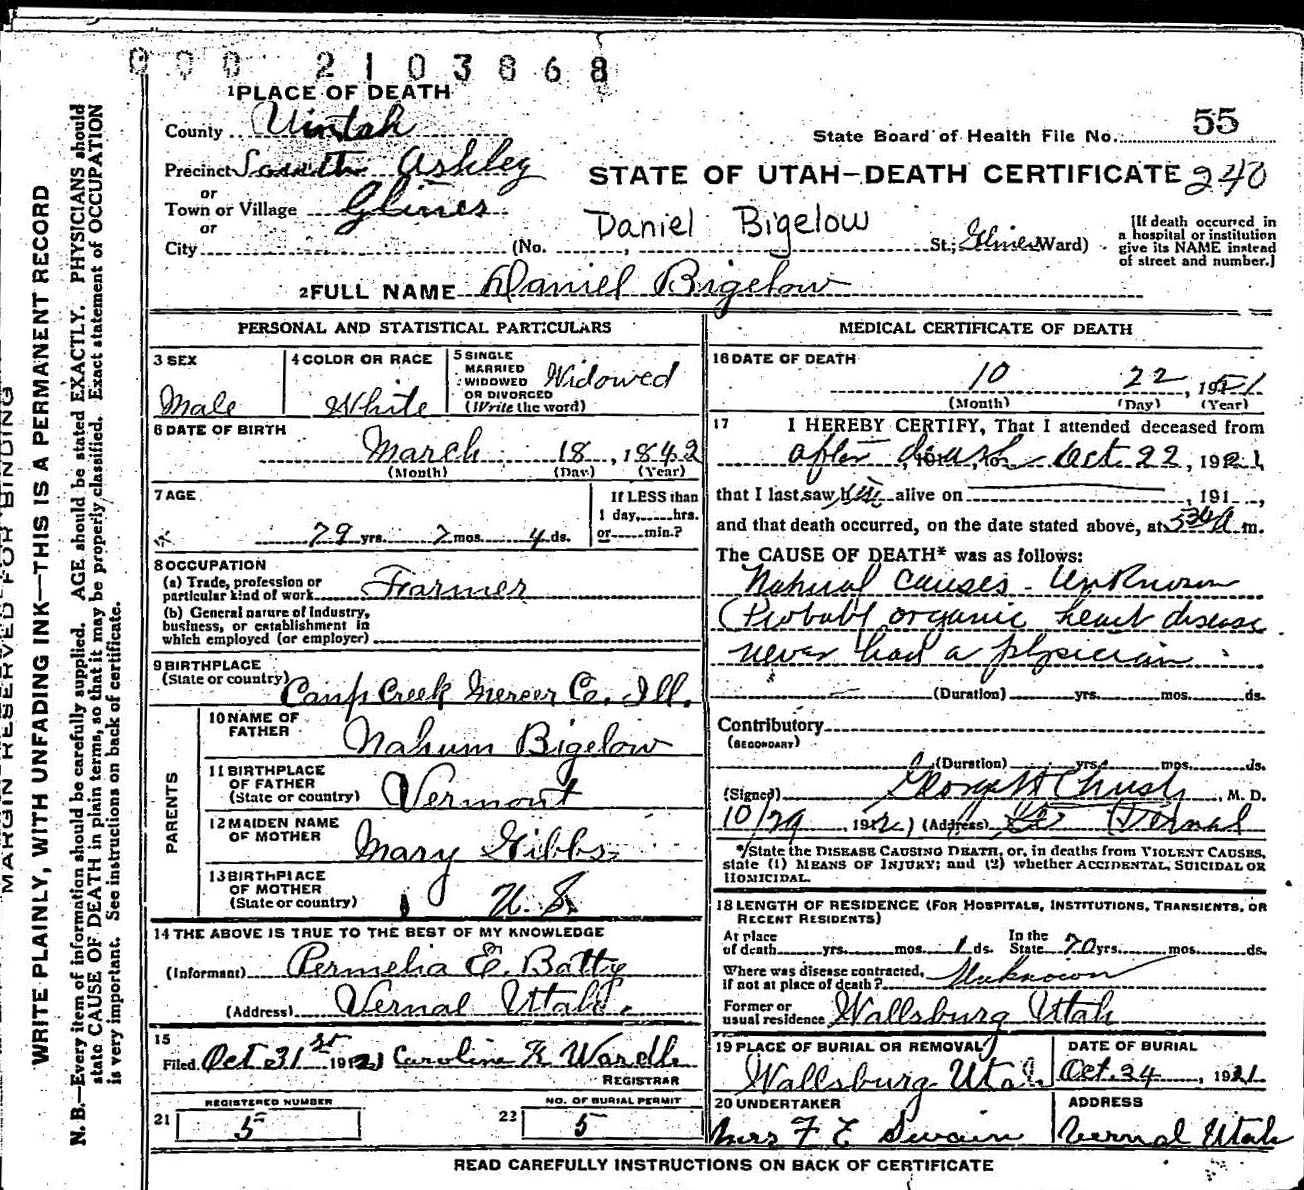 000 2103868
1 PLACE OF DEATH
County Uintah
State Board of Health File No. 55
Precinct South Ashley
STATE OF UTAH—DEATH CERTIFICATE 240
or
Town or Village Glines
or
Daniel Bigelow
City (No. , St; Glines Ward)
[If death occurred in
a hospital or institution
give its NAME instead
of street and number.]
2 FULL NAME Daniel Bigelow
PERSONAL AND STATISTICAL PARTICULARS
3 SEX
Male
4 COLOR OR RACE
White
5 SINGLE
MARRIED
WIDOWED
OR DIVORCED
(Write the word)
Widowed
6 DATE OF BIRTH
March 18, 1842
(Month) (Day) (Year)
7 AGE
79 yrs. 7 mos. 4 ds.
If LESS than
1 day, hrs.
or min.?
8 OCCUPATION
(a) Trade, profession or
particular kind of work Farmer
(b) General nature of industry,
business, or establishment in
which employed (or employer)
9 BIRTHPLACE
(State or country) Camp Creek Mercer Co. Ill.
PARENTS
10 NAME OF
FATHER Nahum Bigelow
11 BIRTHPLACE
OF FATHER
(State or country) Vermont
12 MAIDEN NAME
OF MOTHER Mary Gibbs
13 BIRTHPLACE
OF MOTHER
(State or country) U.S.
14 THE ABOVE IS TRUE TO THE BEST OF MY KNOWLEDGE
(Informant) Permelia E. Batty
(Address) Vernal Utah.
15
Filed Oct 31st 1921 Caroline K Wardle
REGISTRAR
REGISTERED NUMBER
21 5
NO. OF BURIAL PERMIT
23 5
MEDICAL CERTIFICATE OF DEATH
16 DATE OF DEATH
10 22, 1921
(Month) (Day) (Year)
17 I HEREBY CERTIFY, That I attended deceased from
after death Oct. 22, 1921
that I last saw him alive on , 191 ,
and that death occurred, on the date stated above, at 530 A m.
The CAUSE OF DEATH* was as follows:
Natural causes - Unknown
(Probabl organic heart disease
never had a physician
(Duration) yrs. mos. ds.
Contributory
(SECONDARY)
(Duration) yrs. mos. ds.
(Signed) George H , M. D.
10/29, 1921 (Address) Vernal
*State the DISEASE CAUSING DEATH, or, in deaths from VIOLENT CAUSES,
state (1) MEANS OF INJURY; and (2) whether ACCIDENTAL, SUICIDAL OR
HOMICIDAL.
18 LENGTH OF RESIDENCE (FOR HOSPITALS, INSTITUTIONS, TRANSIENTS, OR
RECENT RESIDENTS)
At place
of death yrs. mos. 1 ds.
In the
State 70 yrs. mos. ds.
Where was disease contracted,
if not at place of death? Unknown
Former or
usual residence Wallsburg Utah
19 PLACE OF BURIAL OR REMOVAL
Wallsburg Utah
DATE OF BURIAL
Oct. 24, 1921
20 UNDERTAKER
Mrs F E Swain
ADDRESS
Vernal Utah
READ CAREFULLY INSTRUCTIONS ON BACK OF CERTIFICATE
MARGIN RESERVED FOR BINDING
WRITE PLAINLY, WITH UNFADING INK—THIS IS A PERMANENT RECORD
N. B.—Every item of information should be carefully supplied. AGE should be stated EXACTLY. PHYSICIANS should
state CAUSE OF DEATH in plain terms, so that it may be properly classified. Exact statement of OCCUPATION
is very important. See instructions on back of certificate.